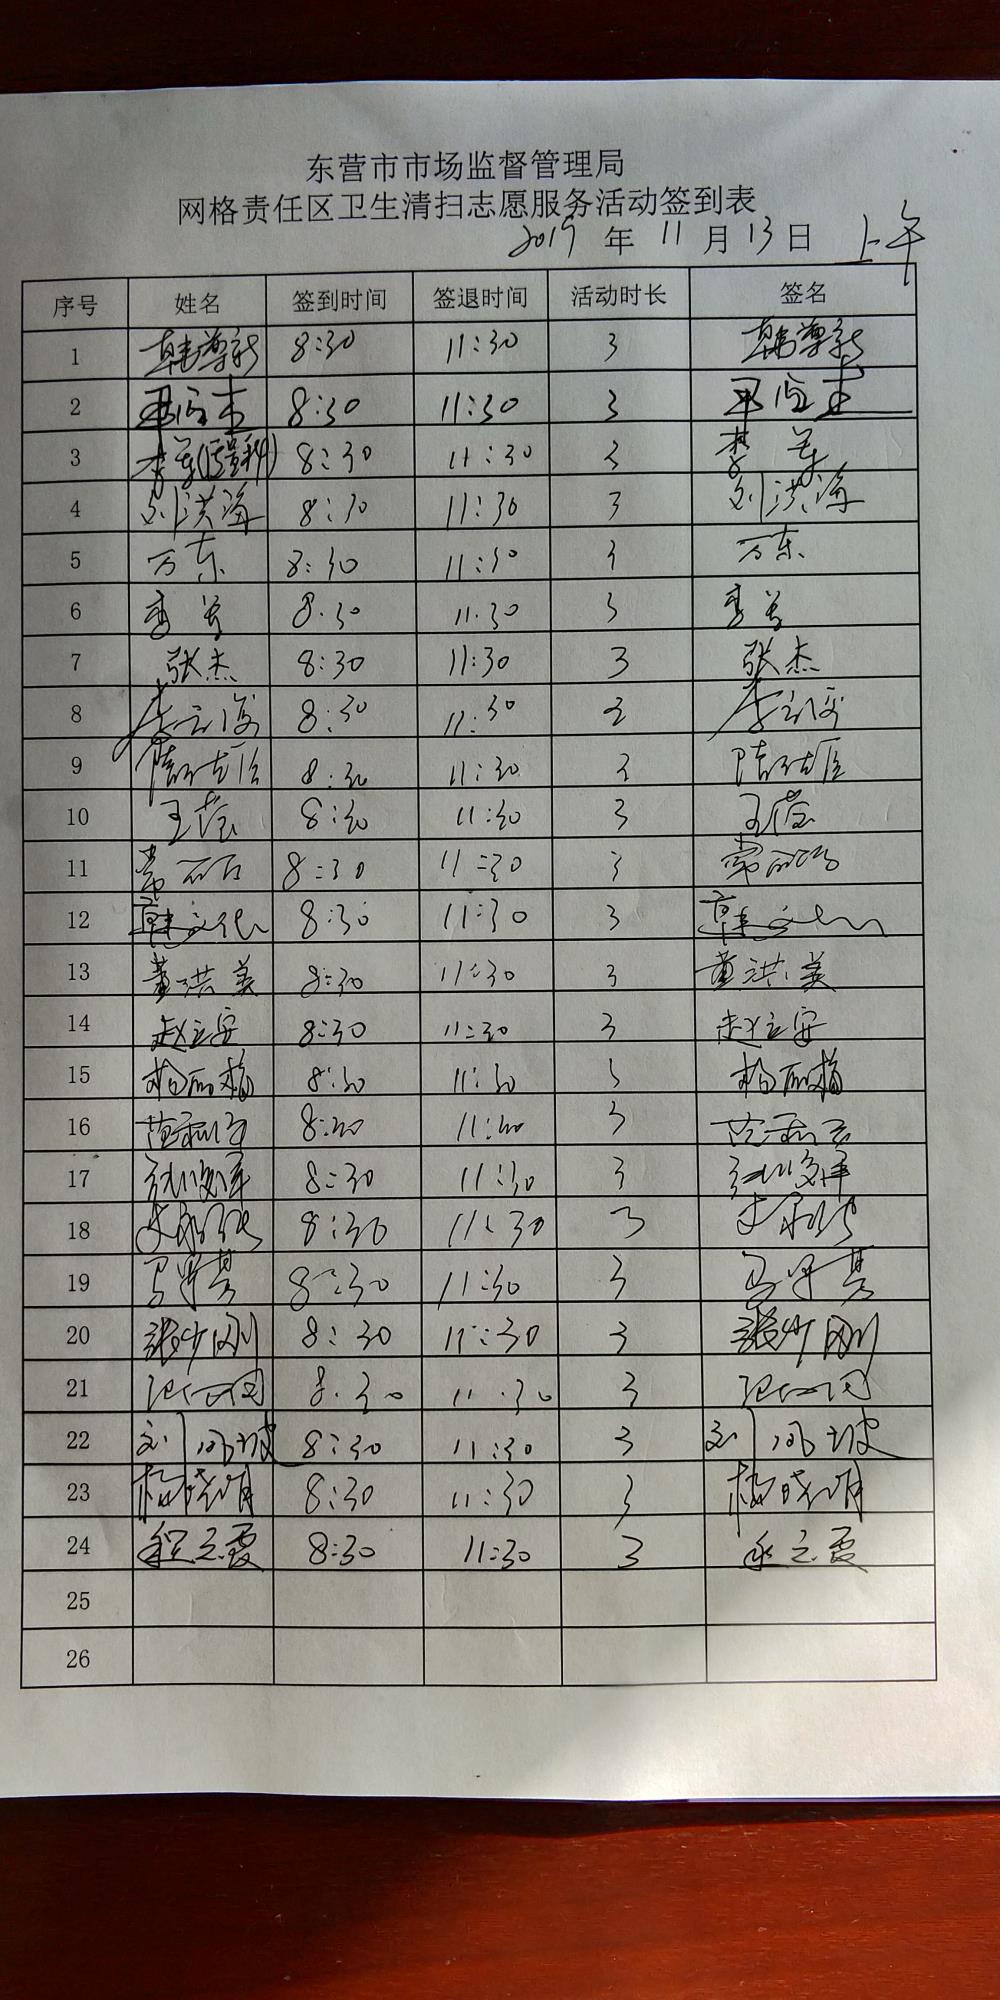 东营市市场监督管理局
网格责任区卫生清扫志愿服务活动签到表
2019 年 11 月 13 日 上午
序号 姓名 签到时间 签退时间 活动时长 签名
1 韩尊新 8:30 11:30 3 韩尊新
2 8:30 11:30 3
3 李军(质量科) 8:30 11:30 3 李军
4 刘洪海 8:30 11:30 3 刘洪海
5 万东 8:30 11:30 3 万东
6 8:30 11:30 3
7 张杰 8:30 11:30 3 张杰
8 李立俊 8:30 11:30 3 李立俊
9 8:30 11:30 3
10 王莅 8:30 11:30 3 王莅
11 8:30 11:30 3
12 韩文 8:30 11:30 3 韩文
13 董洪美 8:30 11:30 3 董洪美
14 赵立安 8:30 11:30 3 赵立安
15 杨丽梅 8:30 11:30 3 杨丽梅
16 8:30 11:30 3
17 8:30 11:30 3
18 8:30 11:30 3
19 马学慧 8:30 11:30 3 马学慧
20 张少刚 8:30 11:30 3 张少刚
21 8:30 11:30 3
22 刘凤坡 8:30 11:30 3 刘凤坡
23 杨晓明 8:30 11:30 3 杨晓明
24 程立霞 8:30 11:30 3 程立霞
25
26